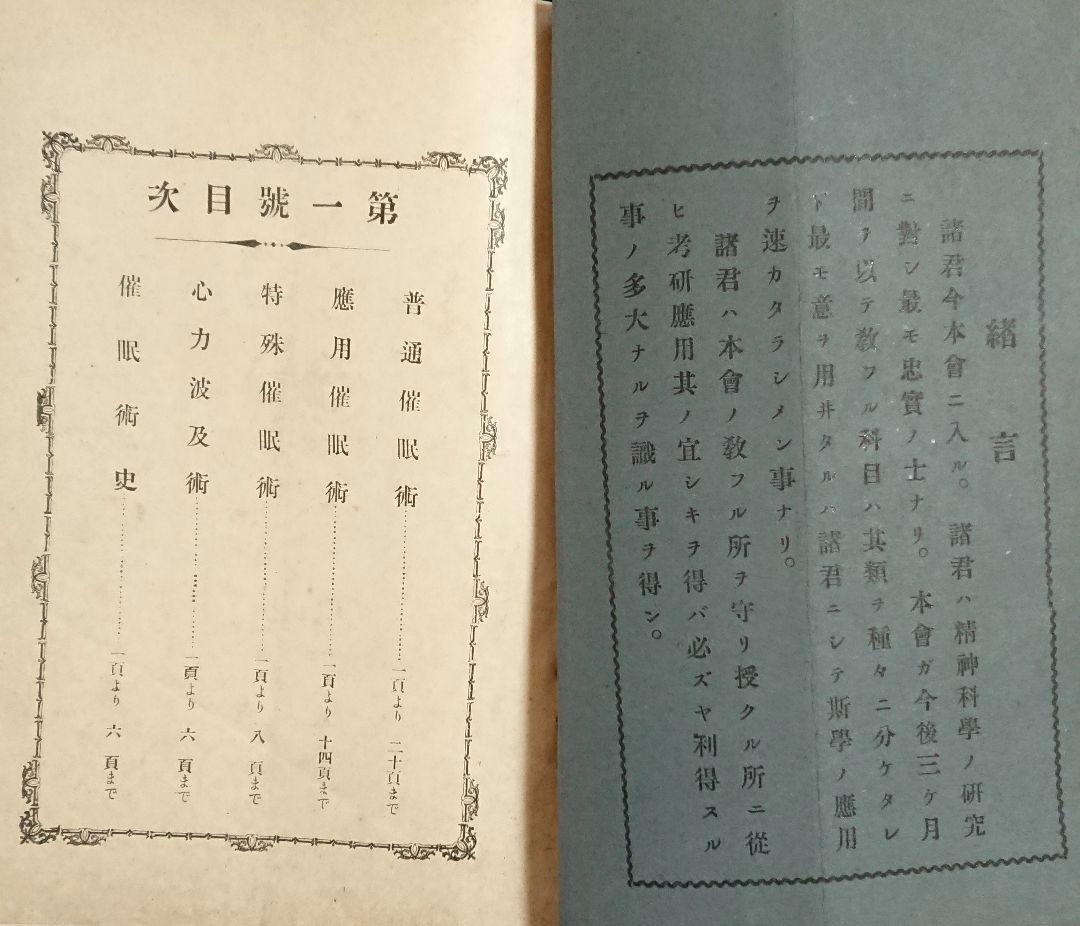 緖言
諸君今本會ニ入ル。諸君ハ精神科學ノ硏究
ニ對シ最モ忠實ノ士ナリ。本會ガ今後三ケ月
間ヲ以テ敎フル科目ハ其類ヲ種々ニ分ケタレ
ド最モ意ヲ用井タルハ諸君ニシテ斯學ノ應用
ヲ速カタラシメン事ナリ。
諸君ハ本會ノ敎フル所ヲ守リ授クル所ニ從
ヒ考硏應用其ノ宜シキヲ得バ必ズヤ利得スル
事ノ多大ナルヲ識ル事ヲ得ン。
第一號目次
普通催眠術……一頁より二十頁まで
應用催眠術……一頁より十四頁まで
特殊催眠術……一頁より八頁まで
心力波及術……一頁より六頁まで
催眠術史……一頁より六頁まで